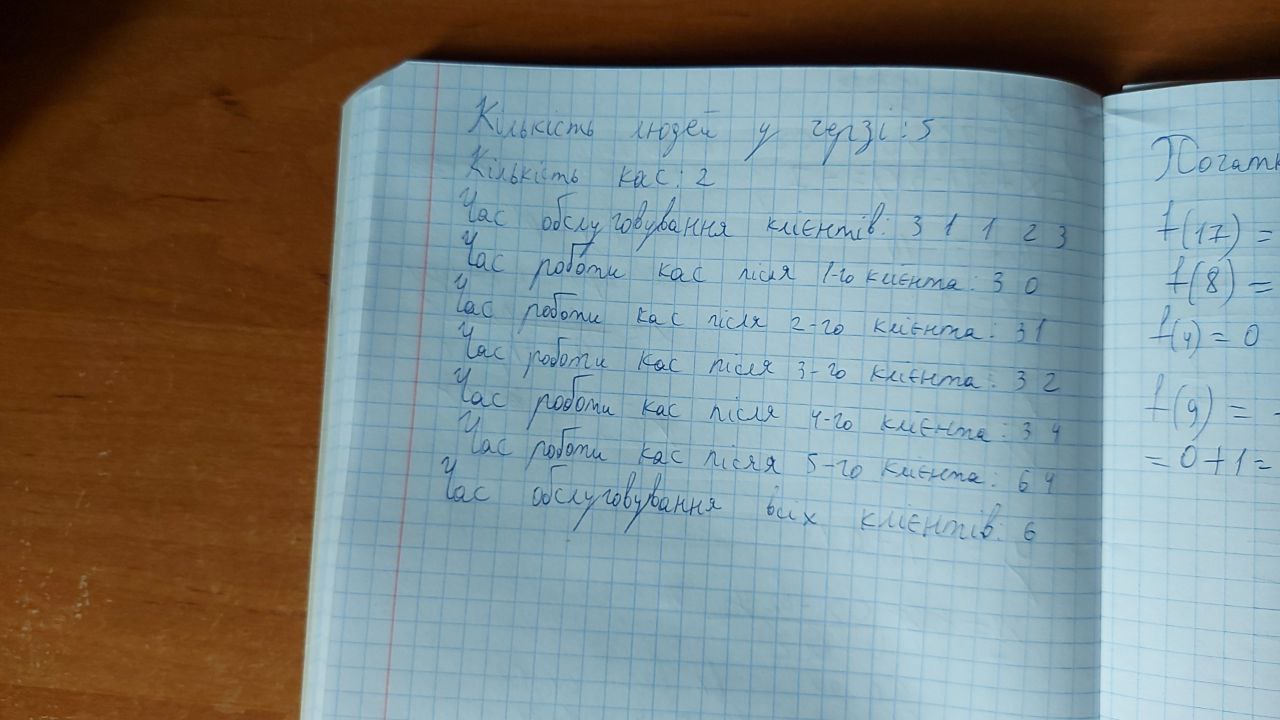 Кількість людей у черзі: 5
Кількість кас: 2
Час обслуговування клієнтів: 3 1 1 2 3
Час роботи кас після 1-го клієнта: 3 0
Час роботи кас після 2-го клієнта: 3 1
Час роботи кас після 3-го клієнта: 3 2
Час роботи кас після 4-го клієнта: 3 4
Час роботи кас після 5-го клієнта: 6 4
Час обслуговування всіх клієнтів: 6
Початк
f(17) =
f(8) =
f(4) = 0
f(9) =
= 0 + 1 =